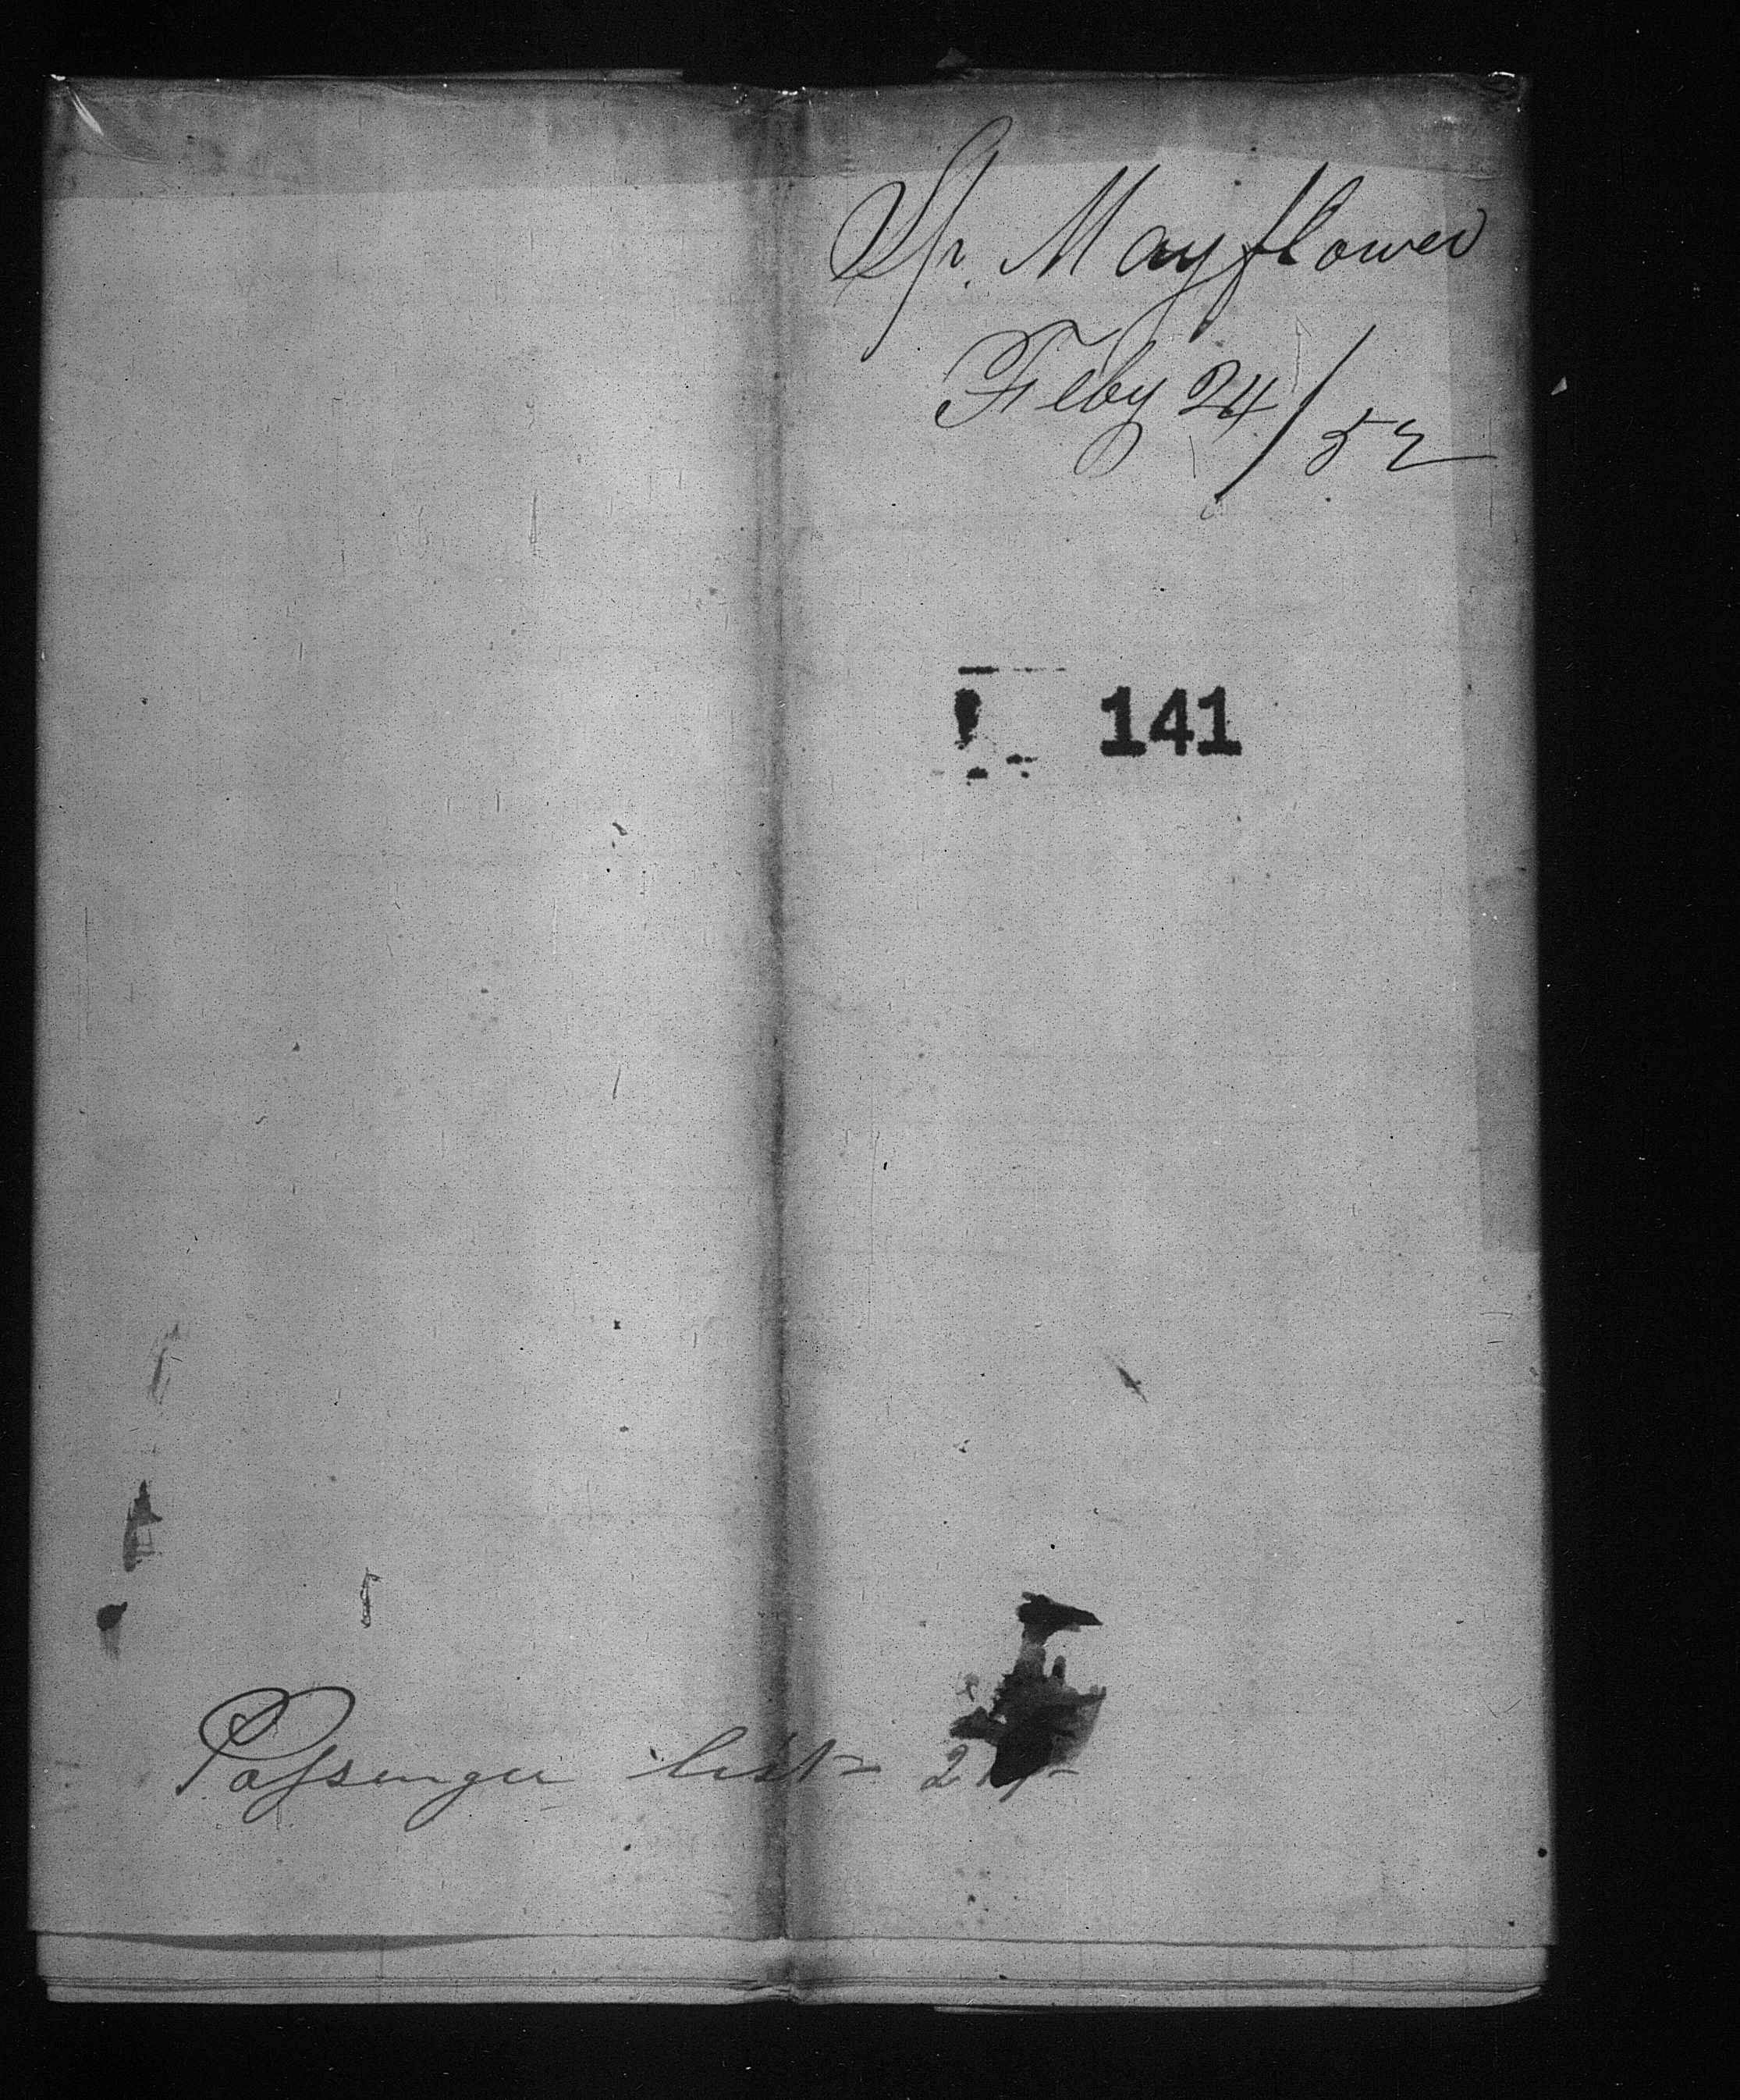 Sh. Mayflower
Feby 24/52
141
Passenger list -